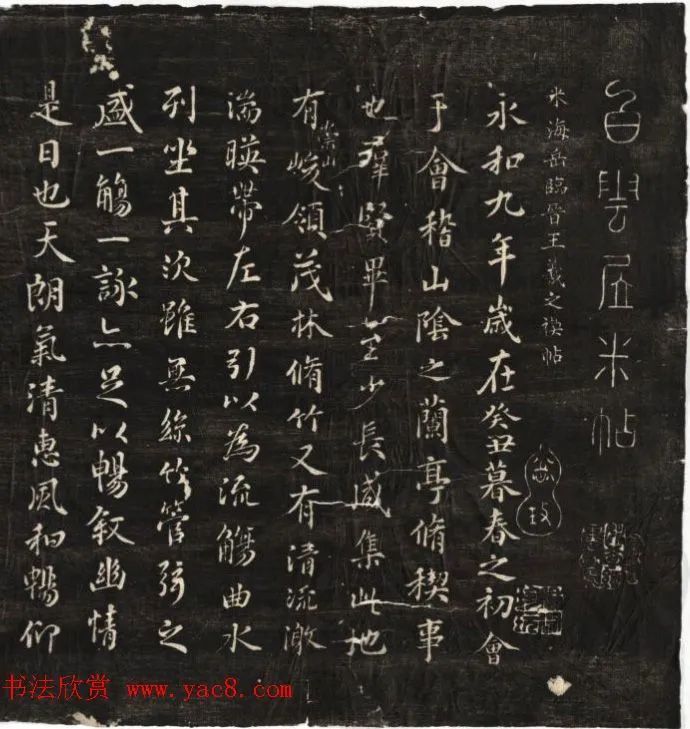 白雲居米帖
米海岳臨晉王羲之禊帖
永和九年歲在癸丑暮春之初會
于會稽山陰之蘭亭脩禊事
也群賢畢至少長咸集此地
有崇山峻領茂林脩竹又有清流激
湍暎帶左右引以為流觴曲水
列坐其次雖無絲竹管弦之
盛一觴一詠亦足以暢敘幽情
是日也天朗氣清惠風和暢仰
书法欣赏 www.yac8.com